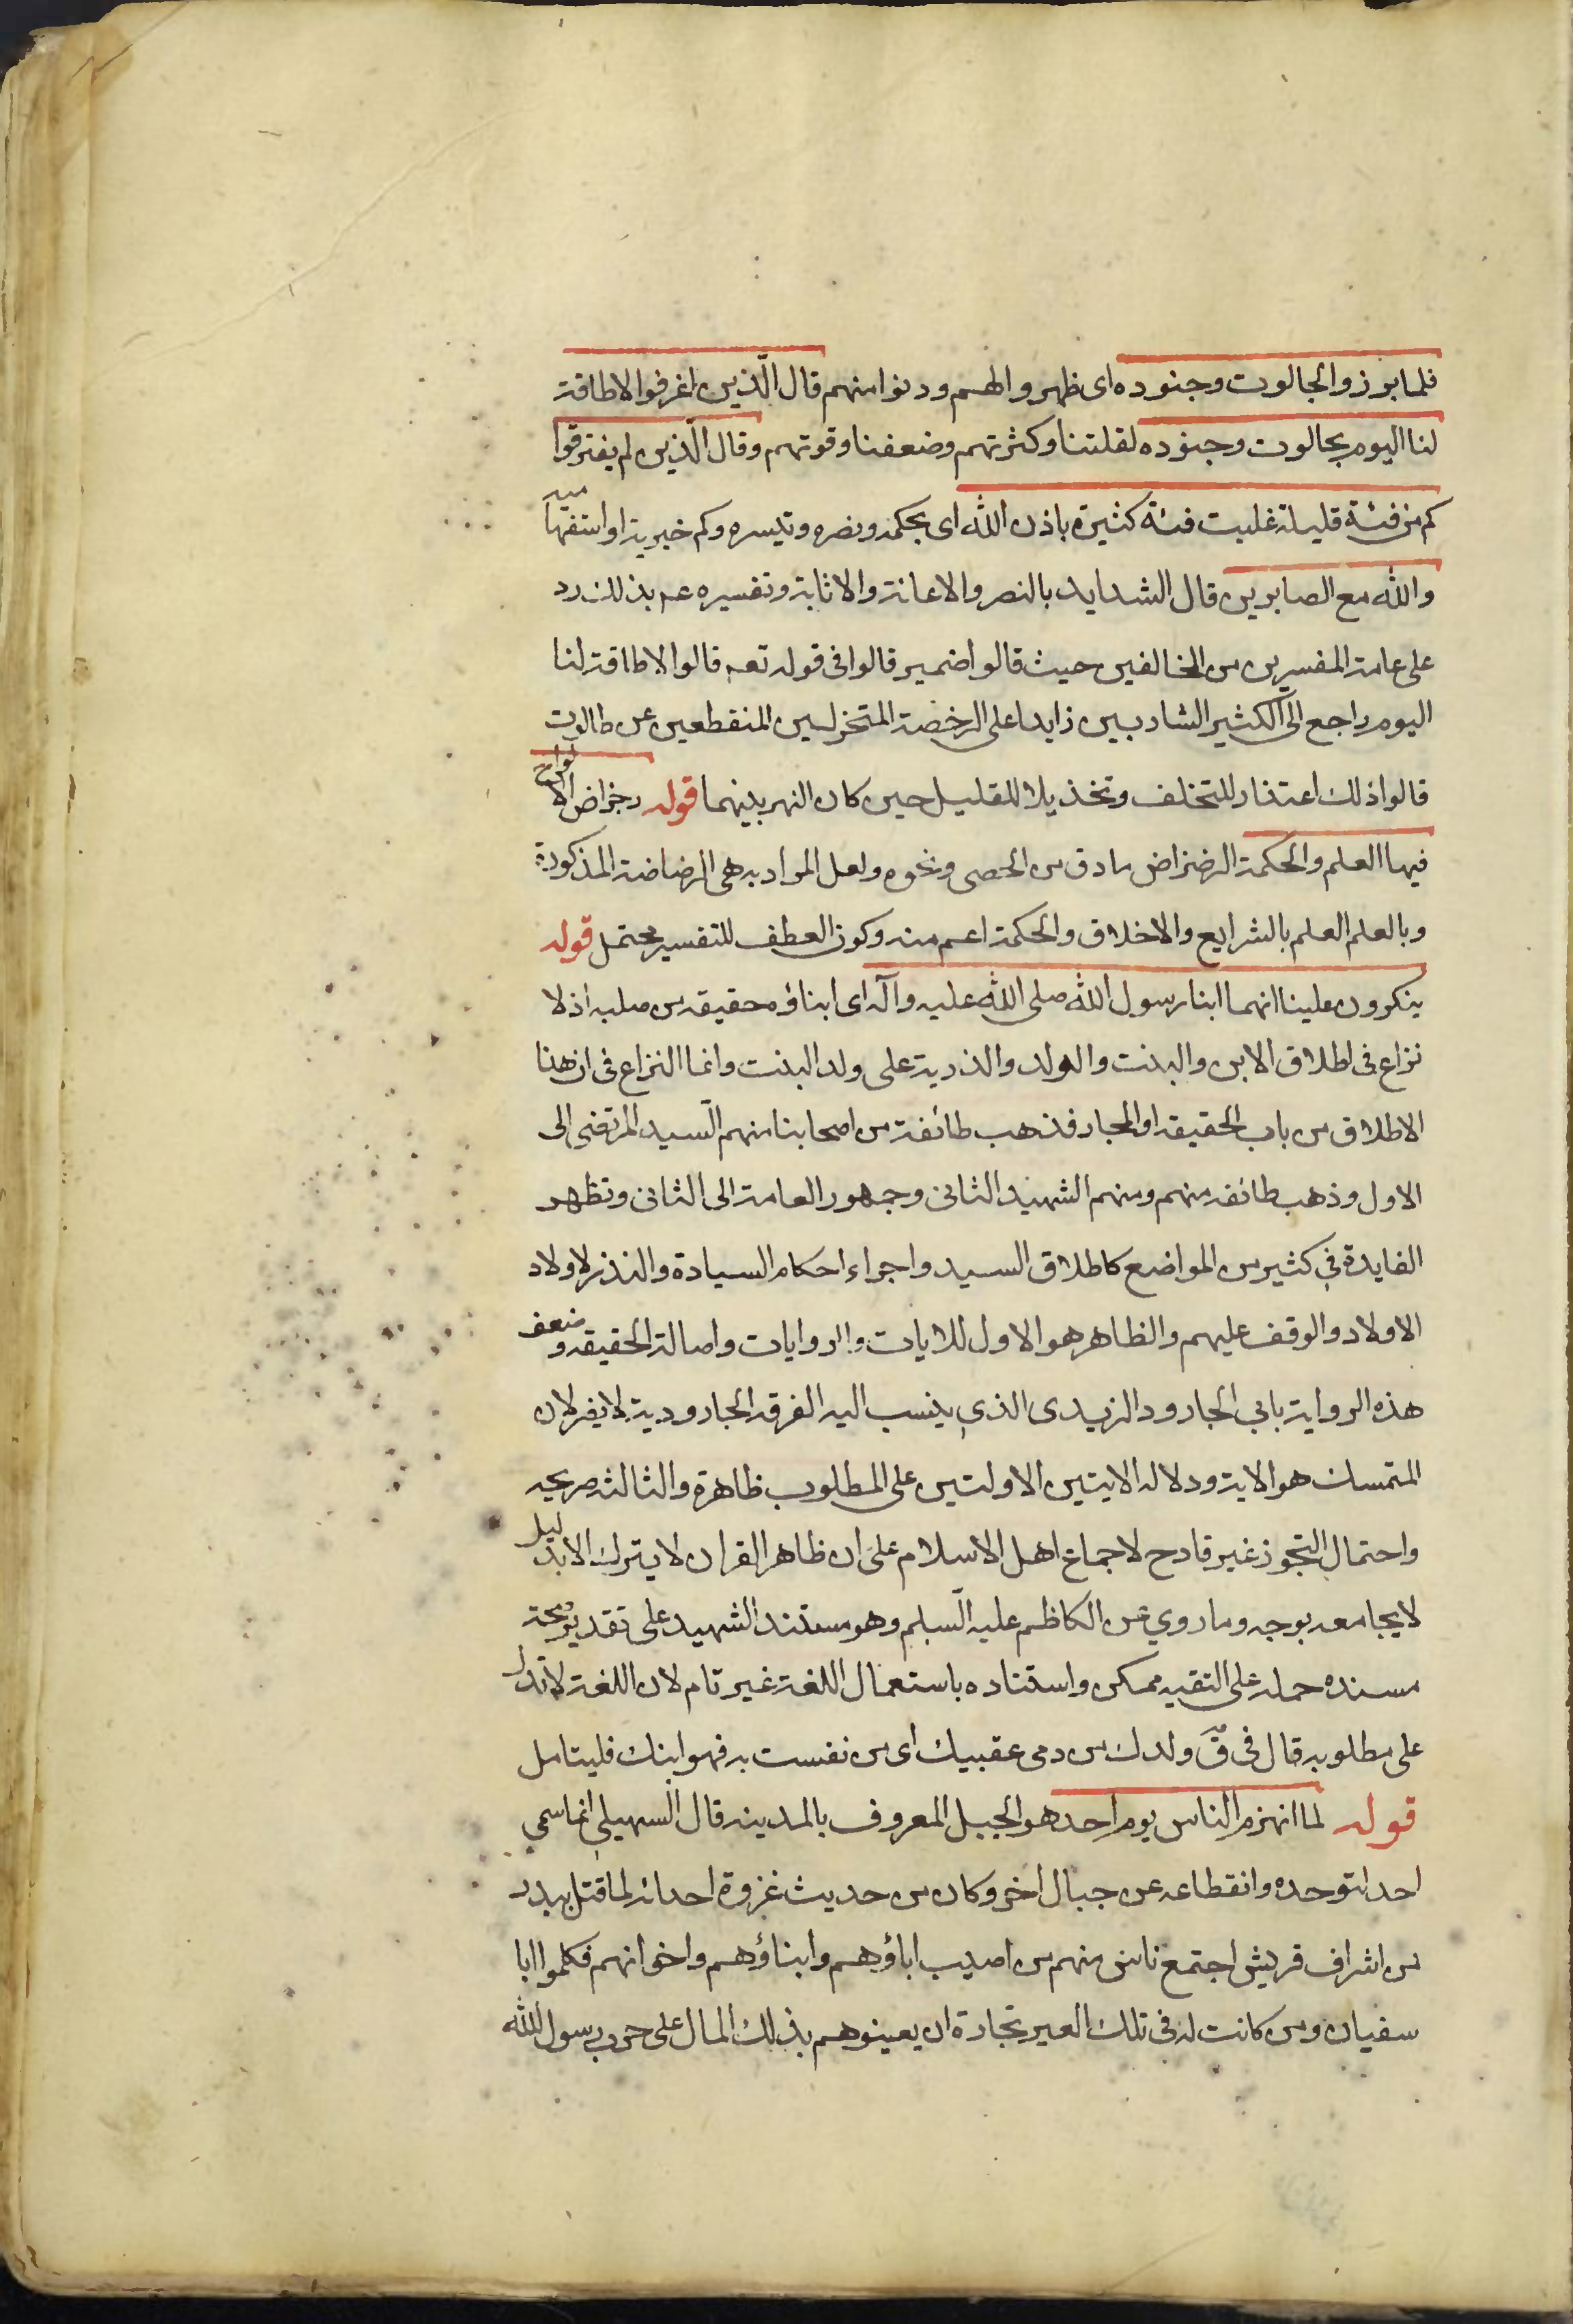 فلما برزوا لجالوت وجنوده اى ظهروا لهم ودنوا منهم قال الّذين اغترفوا لا طاقة
لنا اليوم بجالوت وجنوده لقلتنا وكثرتهم وضعفنا وقوتهم وقال الّذين لم يغترفوا
كم من فئة قليلة غلبت فئة كثيرة باذن الله اى بحكمه ونصره وتيسره وكم خبرية او استفهامية
والله مع الصابرين قال الشدايد بالنصر والاعانة والاثابة وتفسيره عم بذلك رد
على عامة المفسرين من المخالفين حيث قالوا ضمير قالوا فى قوله تعه قالوا لا طاقة لنا
اليوم راجع الى الكثير الشاربين زايدا على الرخصة المتخزلين المنقطعين عن طالوت
قالوا ذلك اعتذار للتخلف وتخذيلا للقليل حين كان النهر بينهما قوله رضراض الالواح
فيها العلم والحكمة الرضراض ما دق من الحصى ونحوه ولعل المراد به هى الرضاضة المذكورة
وبالعلم العلم بالشرايع والاخلاق والحكمة اعم منه وكون العطف للتفسير محتمل قوله
ينكرون علينا انهما ابنا رسول الله صلى الله عليه وآله اى ابناؤه حقيقه من صلبه اذ لا
نزاع فى اطلاق الابن والبنت والولد والذرية على ولد البنت وانما النزاع فى ان هذا
الاطلاق من باب الحقيقه او المجاز فذهب طائفة من اصحابنا منهم السّيد المرتضى الى
الاول وذهب طائفه منهم ومنهم الشهيد الثانى وجمهور العامة الى الثانى وتظهر
الفايدة في كثير من المواضع كاطلاق السيد واجراء احكام السيادة والنذر لاولاد
الاولاد والوقف عليهم والظاهر هو الاول للايات والروايات واصالة الحقيقه وضعف
هذه الرواية بابي الجارود الزيدى الذي ينسب اليه الفرقه الجارودية لا يضر لان
المتمسك هو الاية ودلاله الايتين الاولتين على المطلوب ظاهرة والثالثه صريحه
واحتمال التجوز غير قادح لاجماع اهل الاسلام على ان ظاهر القران لا يترك الا بدليل
لا يجامعه بوجه وما روي عن الكاظم عليه السّلم وهو مستند الشهيد على تقدير صحة
مسنده حمله على التقيه ممكن واستناده باستعمال اللغة غير تام لان اللغة لا تدل
على مطلوبه قال فى ق ولدك من دمى عقبيك اى من نفست به فهو ابنك فليتامل
قوله لما انهزم الناس يوم احد هو الجبل المعروف بالمدينه قال السهيلي انما سمي
احد لتوحده وانقطاعه عن جبال اخر وكان من حديث غزوة احد انه لما قتل ببدر
من اشراف قريش اجتمع ناس منهم من اصيب اباؤهم وابناؤهم واخوانهم فكلموا ابا
سفيان ومن كانت له فى تلك العير تجارة ان يعينوهم بذلك المال على حرب رسول الله